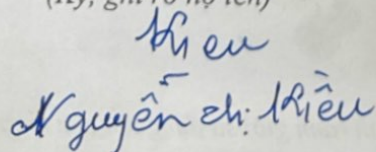 (Ký, ghi rõ họ tên)
Kiều
Nguyễn Thị Kiều